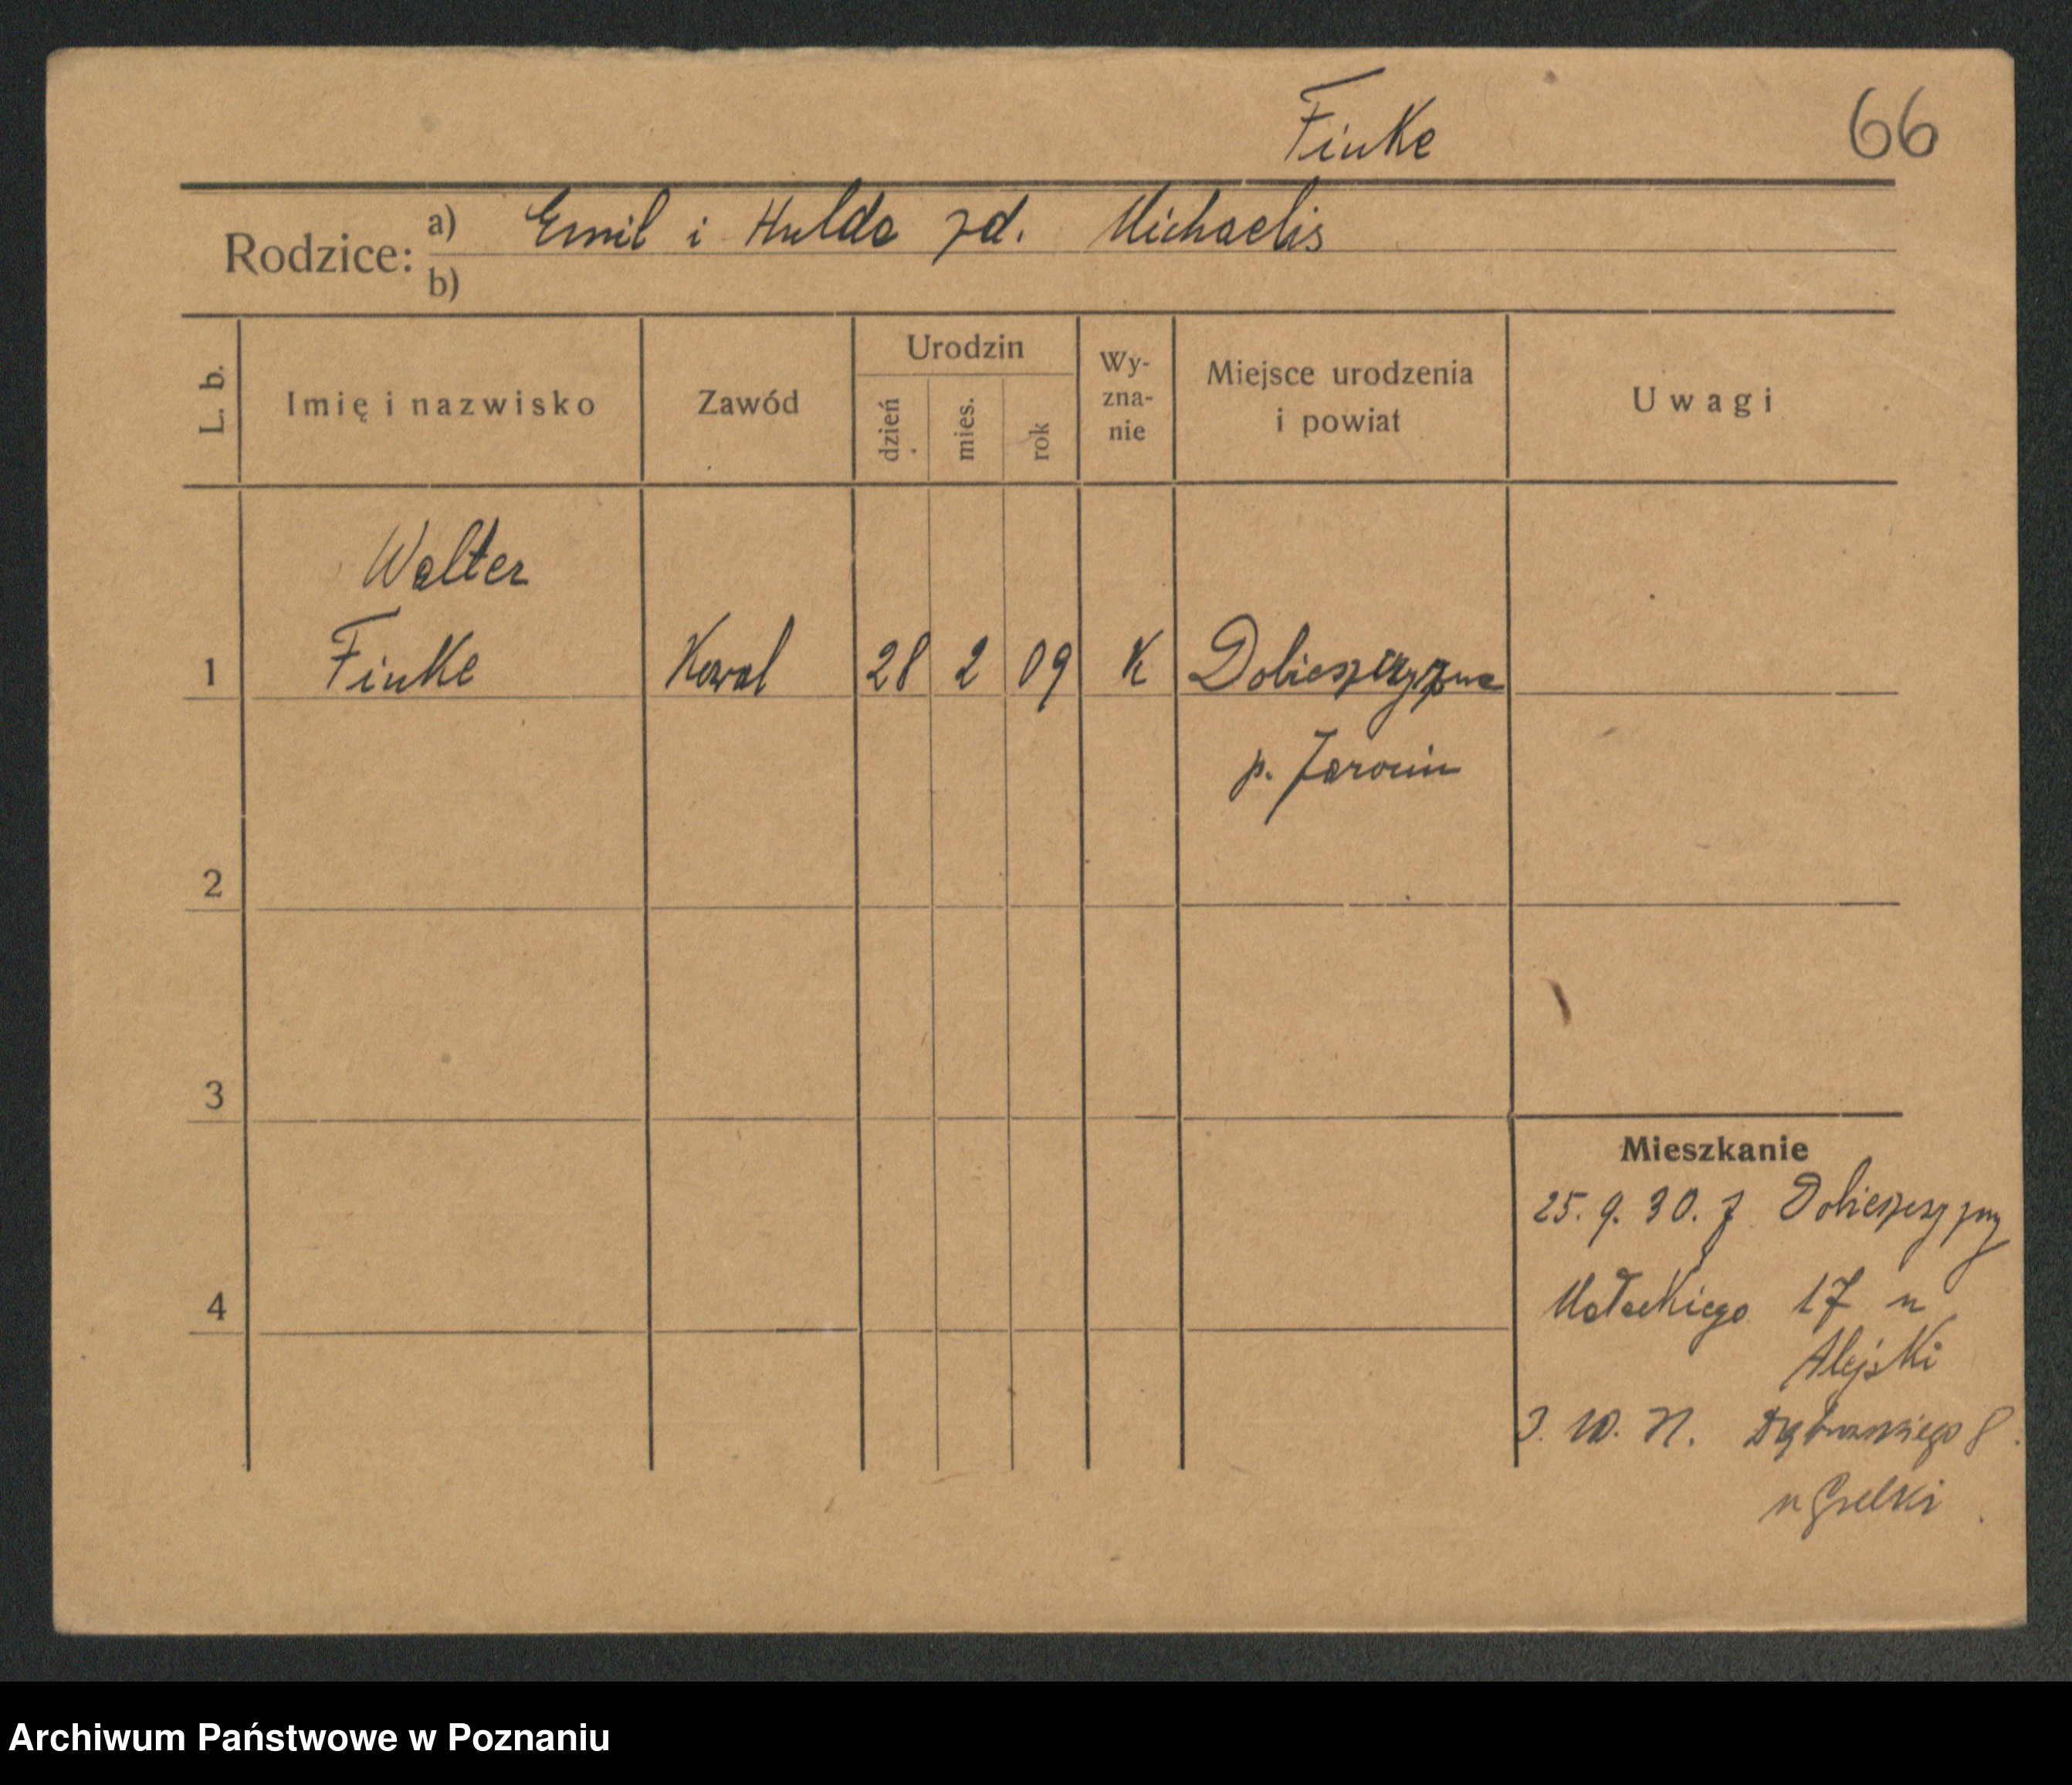 Finke
66
Rodzice: a) Emil i Hulda zd. Michaelis
b)
L. b. Imię i nazwisko Zawód Urodzin dzień mies. rok Wy-zna-nie Miejsce urodzenia i powiat Uwagi
Walter
1 Finke Kowal 28 2 09 K Dobieszczyzna
p. Jarocin
2
3
Mieszkanie
25. 9. 30. z Dobieszczyzny
4 Małeckiego 17 u
Alejski
3. 10. Dąbrowskiego 8.
u
Archiwum Państwowe w Poznaniu